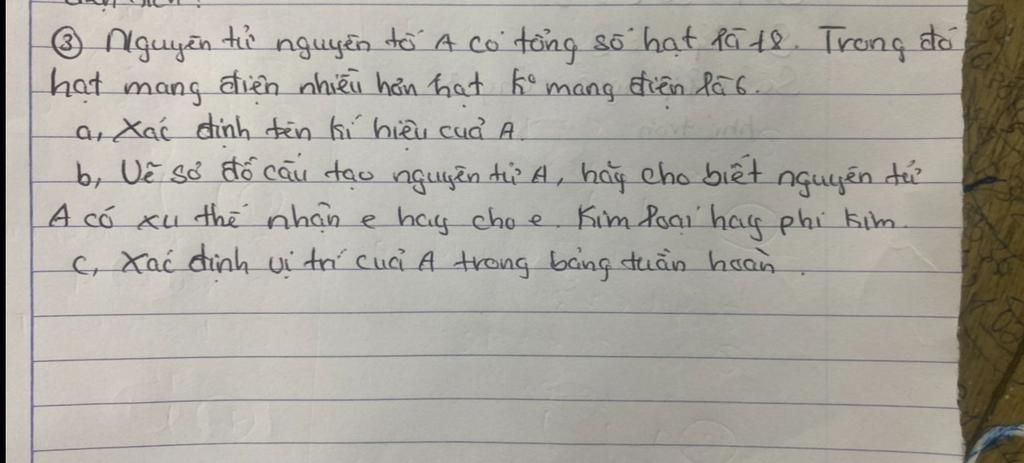 ③ Nguyên tử nguyên tố A có tổng số hạt là 18. Trong đó
hạt mang điện nhiều hơn hạt ko mang điện là 6.
a, Xác định tên kí hiệu của A.
b, Vẽ sơ đồ cấu tạo nguyên tử A, hãy cho biết nguyên tử
A có xu thế nhận e hay cho e. Kim loại hay phi kim.
c, Xác định vị trí của A trong bảng tuần hoàn.